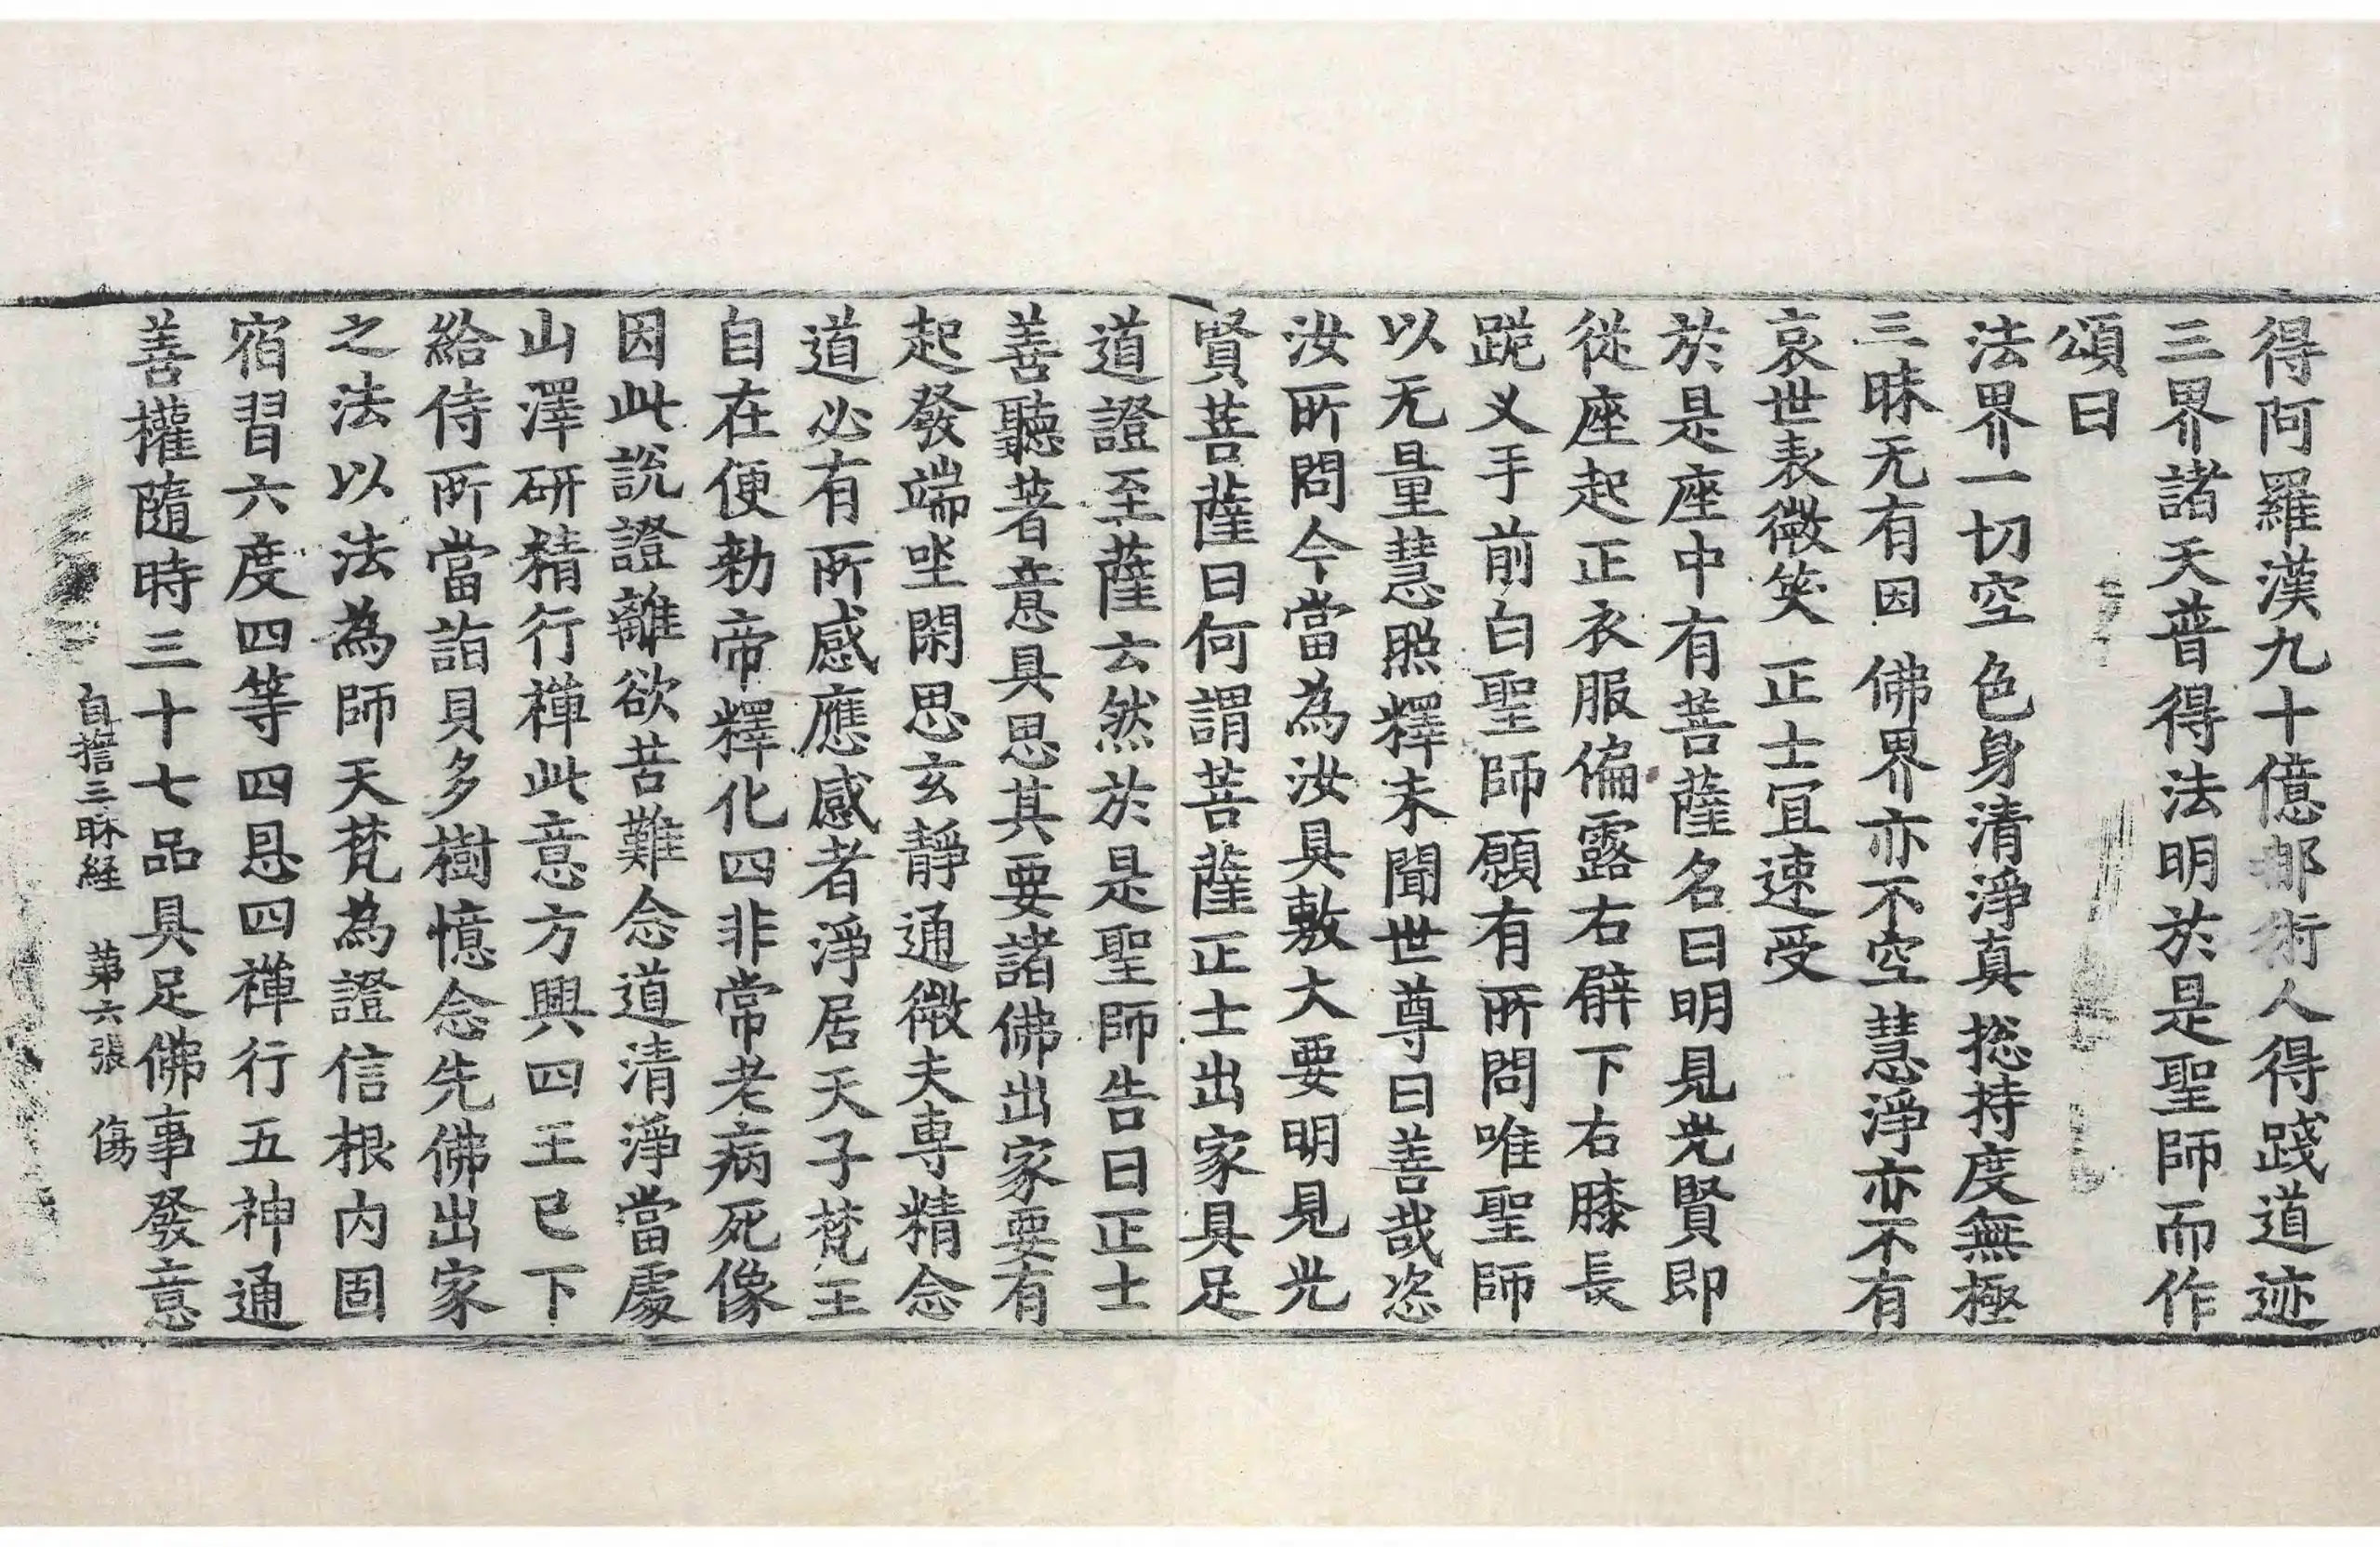 得阿羅漢九十億邮術人得踐道迹
三界諸天普得法明於是聖師而作
頌曰
法界一切空 色身清淨真 捴持度無極
三昧无有因 佛界亦不空 慧淨亦不有
哀世表微笑 正士宜速受
於是座中有菩薩名曰明見光賢即
從座起正衣服偏露右臂下右膝長
跪叉手前白聖師願有所問唯聖師
以无量慧照釋未聞世尊曰善哉恣
汝所問今當為汝具敷大要明見光
賢菩薩曰何謂菩薩正士出家具足
道證至薩云然於是聖師告曰正士
善聽著意具思其要諸佛出家要有
起發端坐閑思玄靜通微夫專精念
道必有所感應感者淨居天子梵王
自在便勑帝釋化四非常老病死像
因此說證離欲苦難念道清淨當處
山澤研精行禅此意方興四王已下
給侍所當詣貝多樹憶念先佛出家
之法以法為師天梵為證信根內固
宿習六度四等四恩四禅行五神通
善權隨時三十七品具足佛事發意
自誓三昧経 第六張 傷